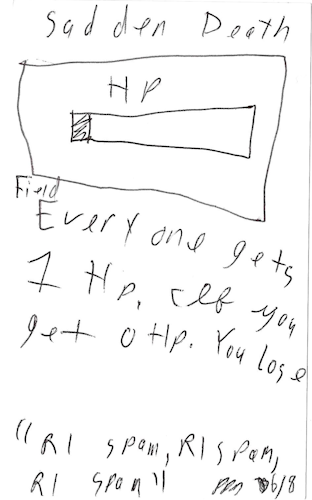 Sadden Death
HP
Field
Everyone gets
1 Hp. If you
get 0 Hp. You lose
"R1 spam, R1 spam,
R1 spam"
6/8